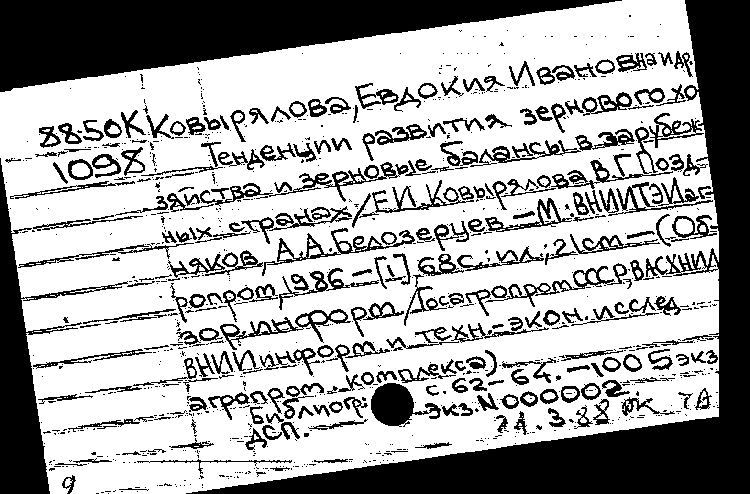 88.50К Ковырялова, Евдокия Ивановна и др.
1098 Тенденции развития зернового хо-
зяйства и зерновые балансы в зарубеж-
ных странах / Е.И. Ковырялова, В.Г. Позд-
няков, А.А. Белозерцев. — М.: ВНИИТЭИаг-
ропром, 1986. — [1], 68 с.: ил.; 21 см — (Об-
зор. информ. / Госагропром СССР, ВАСХНИЛ,
ВНИИ информ. и техн.-экон. исслед.
агропром. комплекса)
Библиогр.: с. 62-64. — 100 5 экз
ДСП. — Экз. N 000002
24.3.88
9